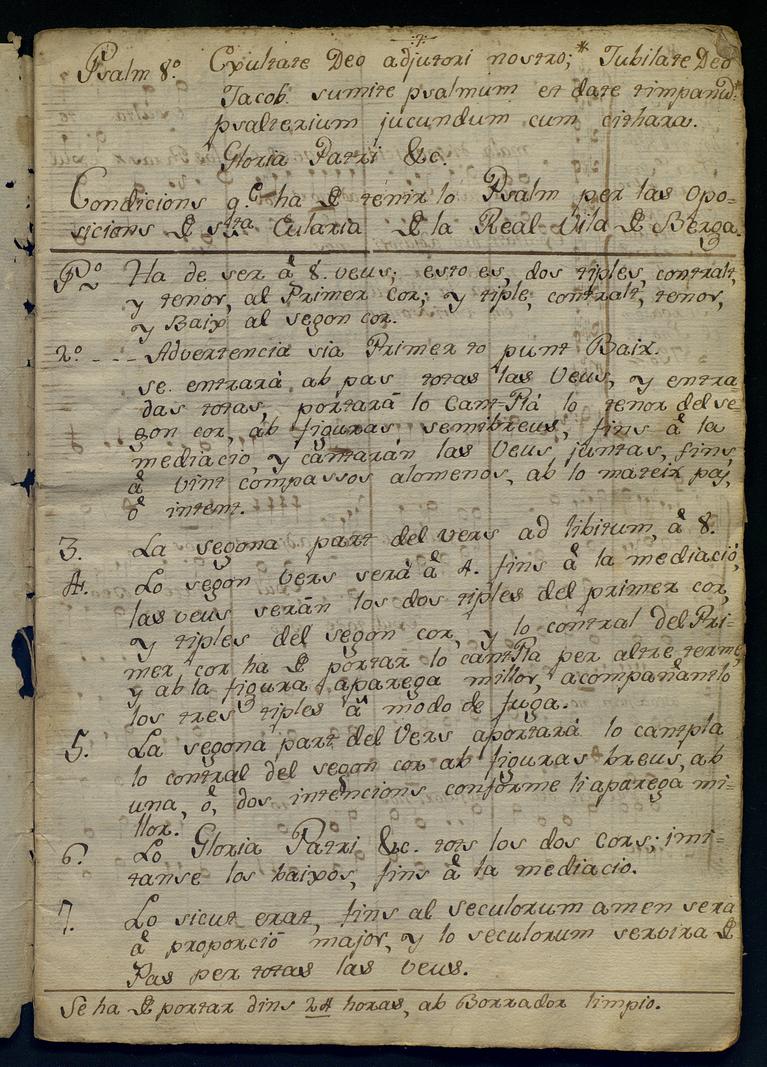 Psalm 8.º Exultate Deo adjutori nostro;* Iubilate Deo
Iacob. sumite psalmum et date timpanū:
psalterium jucundum cum cithara.
Gloria Patri &c.
Condicions q.e ha de tenir lo Psalm per las Opo=
sicions de sta. Eularia de la Real Vila de Berga.
P.º Ha de ser à 8. veus; esto es, dos tiples, contralt,
y tenor, al Primer cor; y tiple, contralt, tenor,
y Baix al segon cor.
2.º - - - Advertencia sia Primer to punt Baix.
se entrará ab pas totas las Veus, y entra=
das totas, portará lo Cant=Plá lo tenor del se=
gon cor, ab figuras semibreus, fins â la
mediació, y cantarán las Veus juntas, fins,
â vint compassos alomenos, ab lo mateix pas,
ô intent.
3. La segona part del vers ad libitum, â 8.
4. Lo segon Vers será â 4. fins â la mediació,
las veus serán los dos tiples del primer cor,
y tiples del segon cor, y lo contral del Pri=
mer cor ha de portar lo cantPla per altre terme,
y ab la figura li aparega millor, acompañantlo
los tres tiples â modo de fuga.
5. La segona part del Vers aportará lo cantpla
lo contral del segon cor ab figuras breus, ab
una, ô, dos intencions conforme li aparega mi=
llor.
6. Lo Gloria Patri &c. tots los dos Cors; imi=
tanse los baixos, fins â la mediacio.
7. Lo sicut erat, fins al seculorum amen será
â proporció major, y lo seculorum servira de
Pas per totas las veus.
Se ha de portar dins 24 horas, ab Borrador limpio.